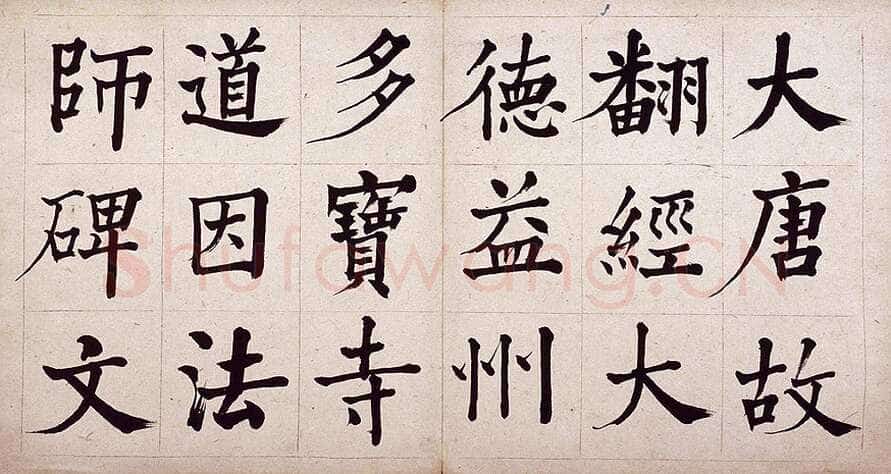 大唐故
翻經大
德益州
多寶寺
道因法
師碑文
Shufawang.CN